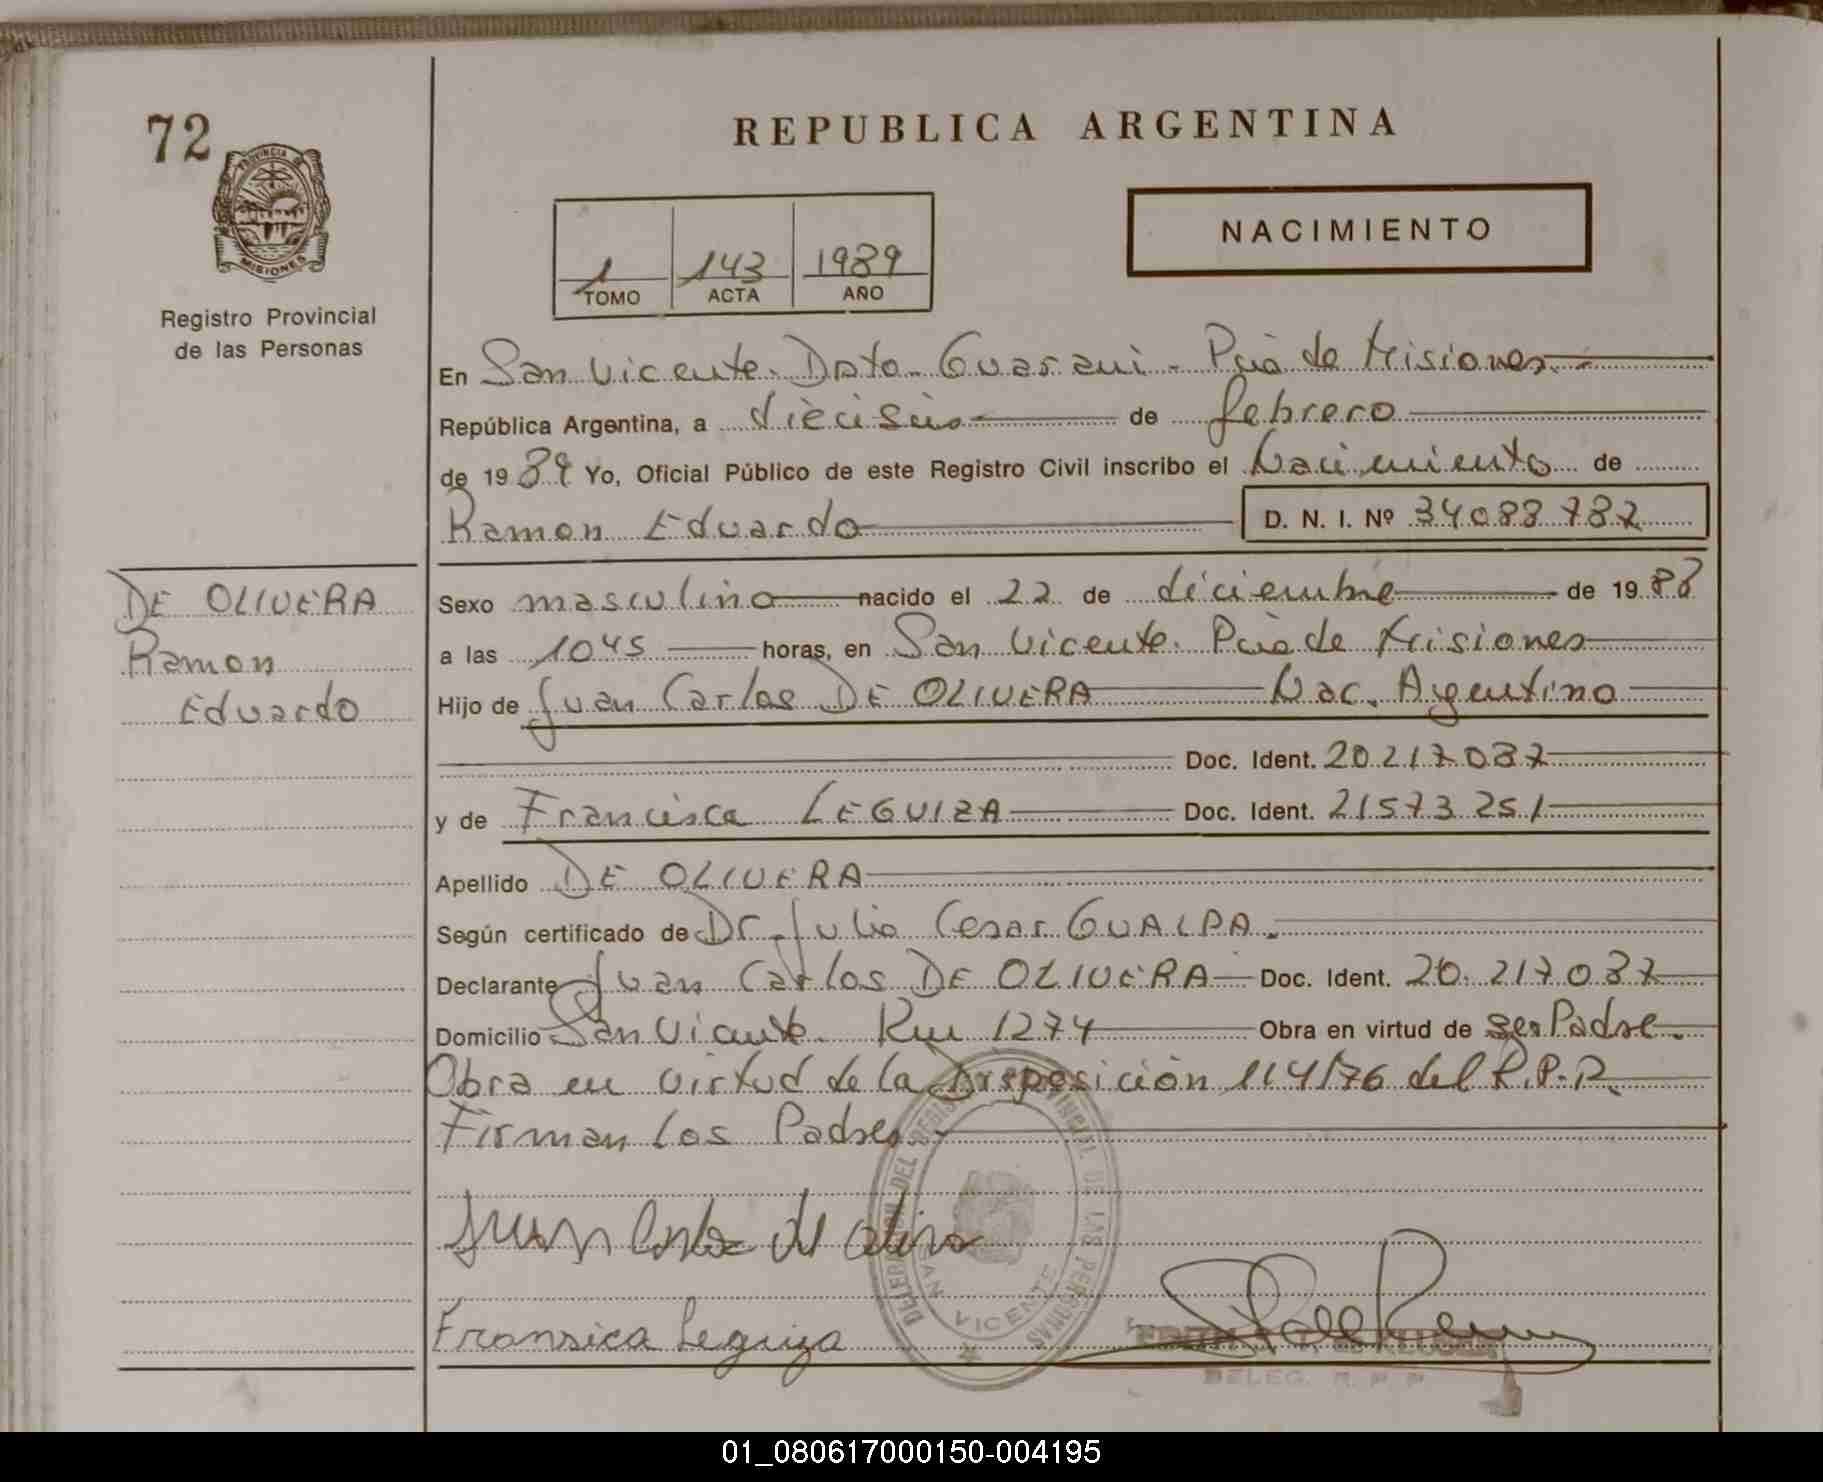 72
PROVINCIA DE
MISIONES
Registro Provincial
de las Personas
REPUBLICA ARGENTINA
NACIMIENTO
1 143 1989
TOMO ACTA AÑO
En San Vicente. Dpto. Guarani. Pcia de Misiones.-
República Argentina, a dieciséis de febrero
de 1989 Yo, Oficial Público de este Registro Civil inscribo el Nacimiento de
Ramon Eduardo D. N. I. Nº 34088787
DE OLIVERA
Ramon
Eduardo
Sexo masculino nacido el 22 de diciembre de 1988
a las 1045 horas, en San Vicente. Pcia de Misiones
Hijo de Juan Carlos DE OLIVERA Nac. Argentino
Doc. Ident. 20.217.087
y de Francisca LEGUIZA Doc. Ident. 21573251
Apellido DE OLIVERA
Según certificado de Dr. Julio Cesar GUALPA.
Declarante Juan Carlos DE OLIVERA Doc. Ident. 20.217.087
Domicilio San Vicente. Km 1274 Obra en virtud de ser Padre.
Obra en virtud de la Disposición 114/76 del R.P.P.
Firman los Padres.-
Juan Carlos de
Fransica Leguiza
DELEGACION DEL REGISTRO PROVINCIAL DE LAS PERSONAS
SAN VICENTE
DELEG. R. P. P.
01_080617000150-004195